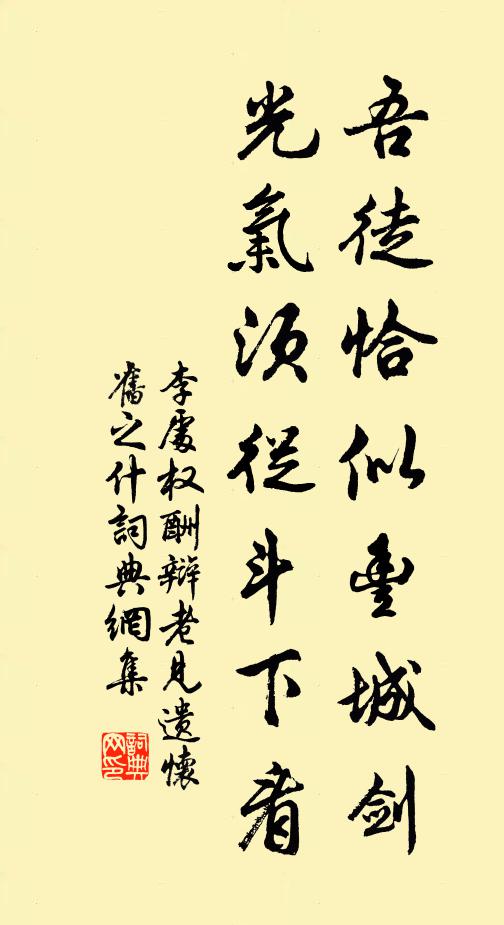 吾徒恰似豐城劍
光氣須從斗下看
李處权酬辯老見遺懷
舊之什詞典網集
詞典网印